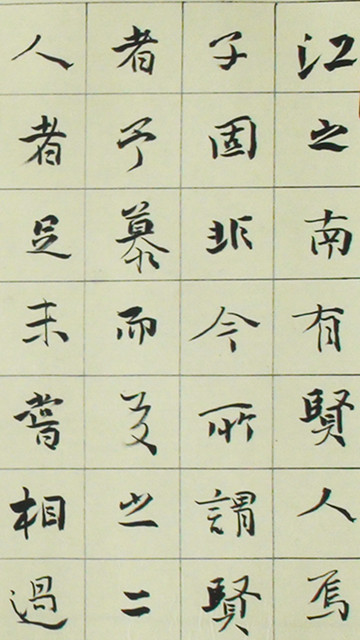 江之南有賢人焉
子固非今所謂賢
者予慕而友之二
人者足未嘗相過